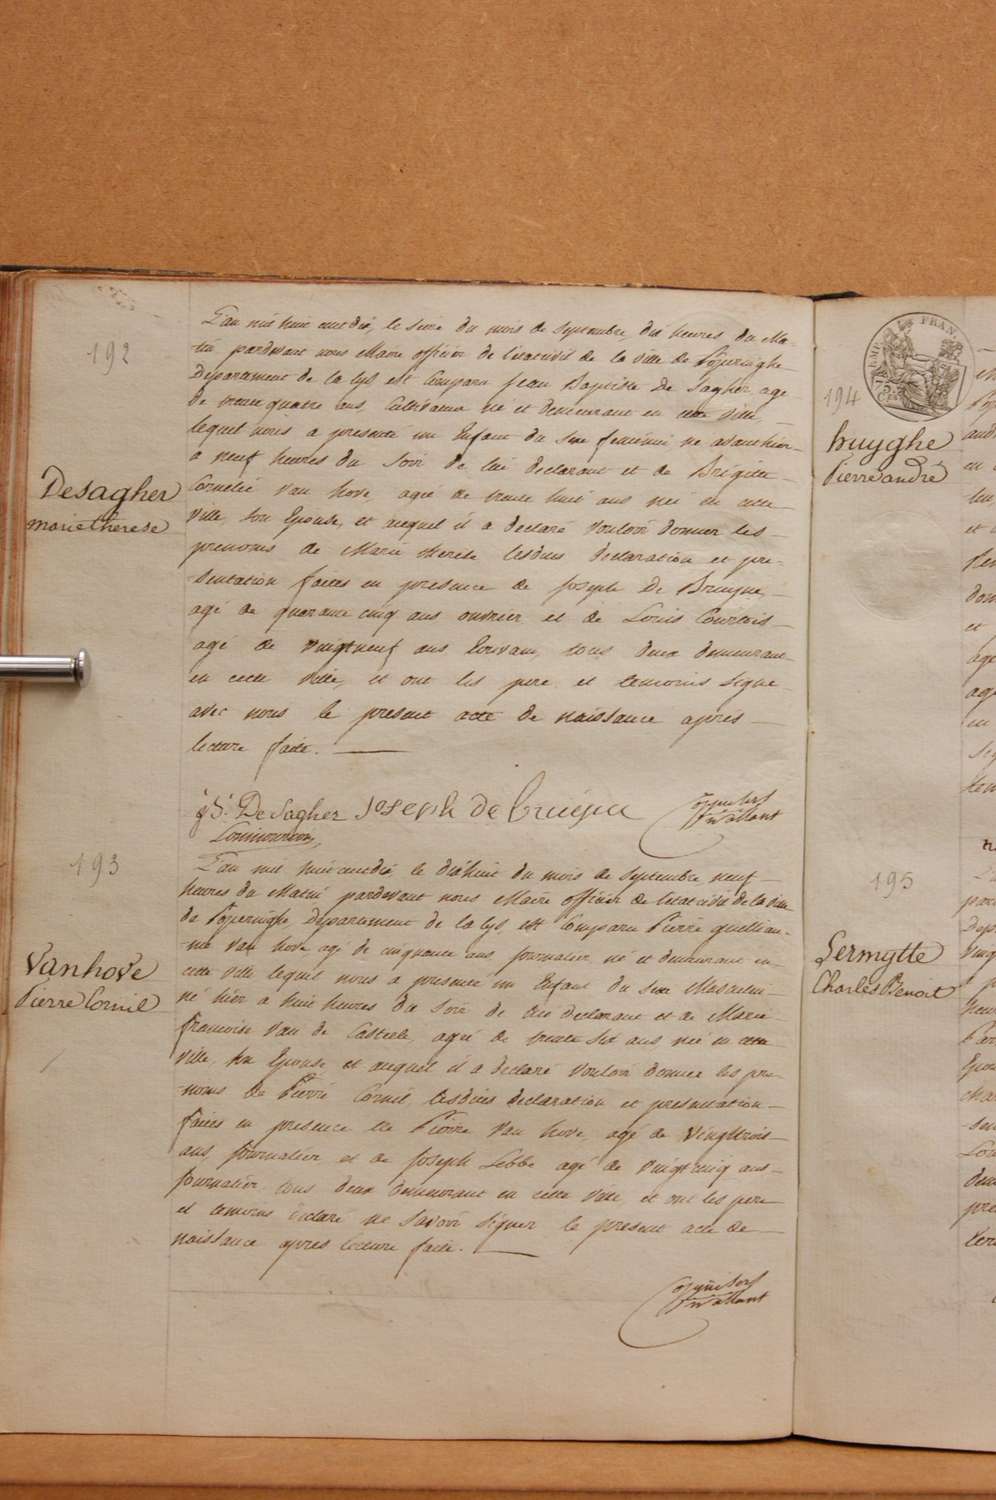 192
L'an mil huit cent dix, le seize du mois de septembre, dix heures du Ma-
tin pardevant nous Maire officier de l'etat civil de la ville de Poperinghe
Departement de la Lys est Comparu Jean Baptiste De Sagher, age
De trente quatre ans, Cultivateur né et demeurant en cette ville,
lequel nous a presenté un Enfant du sexe feminin né avant hier
a neuf heures du Soir de lui declarant et de Brigitte
Cornelie Van hove, agée de trente huit ans née en cette
Desagher
marie therese
ville, son Epouse, et auquel il a declaré vouloir donner les
prenoms de Marie therese lesdites declaration et pre-
sentation faites en presence de Joseph De Bruyne,
agé de quarante cinq ans ouvrier et de Louis Courtois
agé de vingt neuf ans Ecrivain, tous deux demeurant
en cette ville, et ont les pere et temoins signé
avec nous le present acte de naissance apres
lecture faite.
j. B. De Sagher Joseph de bruyne
193
L'an mil huit cent dix le dixhuit du mois de septembre neuf
heures du Matin pardevant nous Maire officier de l'etat civil de la ville
de Poperinghe Departement de la Lys, est Comparu Pierre guillau-
me Van hove agé de cinquante ans journalier né et demeurant en
Vanhove
Pierre Cornil
cette ville lequel nous a presenté un Enfant du sexe Masculin
né hier a huit heures du Soir de lui declarant et de Marie
francoise Van de Casteele, agée de trente six ans née en cette
ville, son Epouse, et auquel il a declaré vouloir donner les pre-
noms de Pierre Cornil, lesdites declaration et presentation
faites en presence de Pierre Van hove, agé de vingt trois
ans, journalier et de Joseph Lebbe agé de vingt cinq ans
journalier tous deux demeurant en cette ville et ont les pere
et temoins declaré ne savoir signer le present acte de
naissance apres lecture faite.
194
huyghe
Pierre andré
195
Lermytte
Charles Benoit